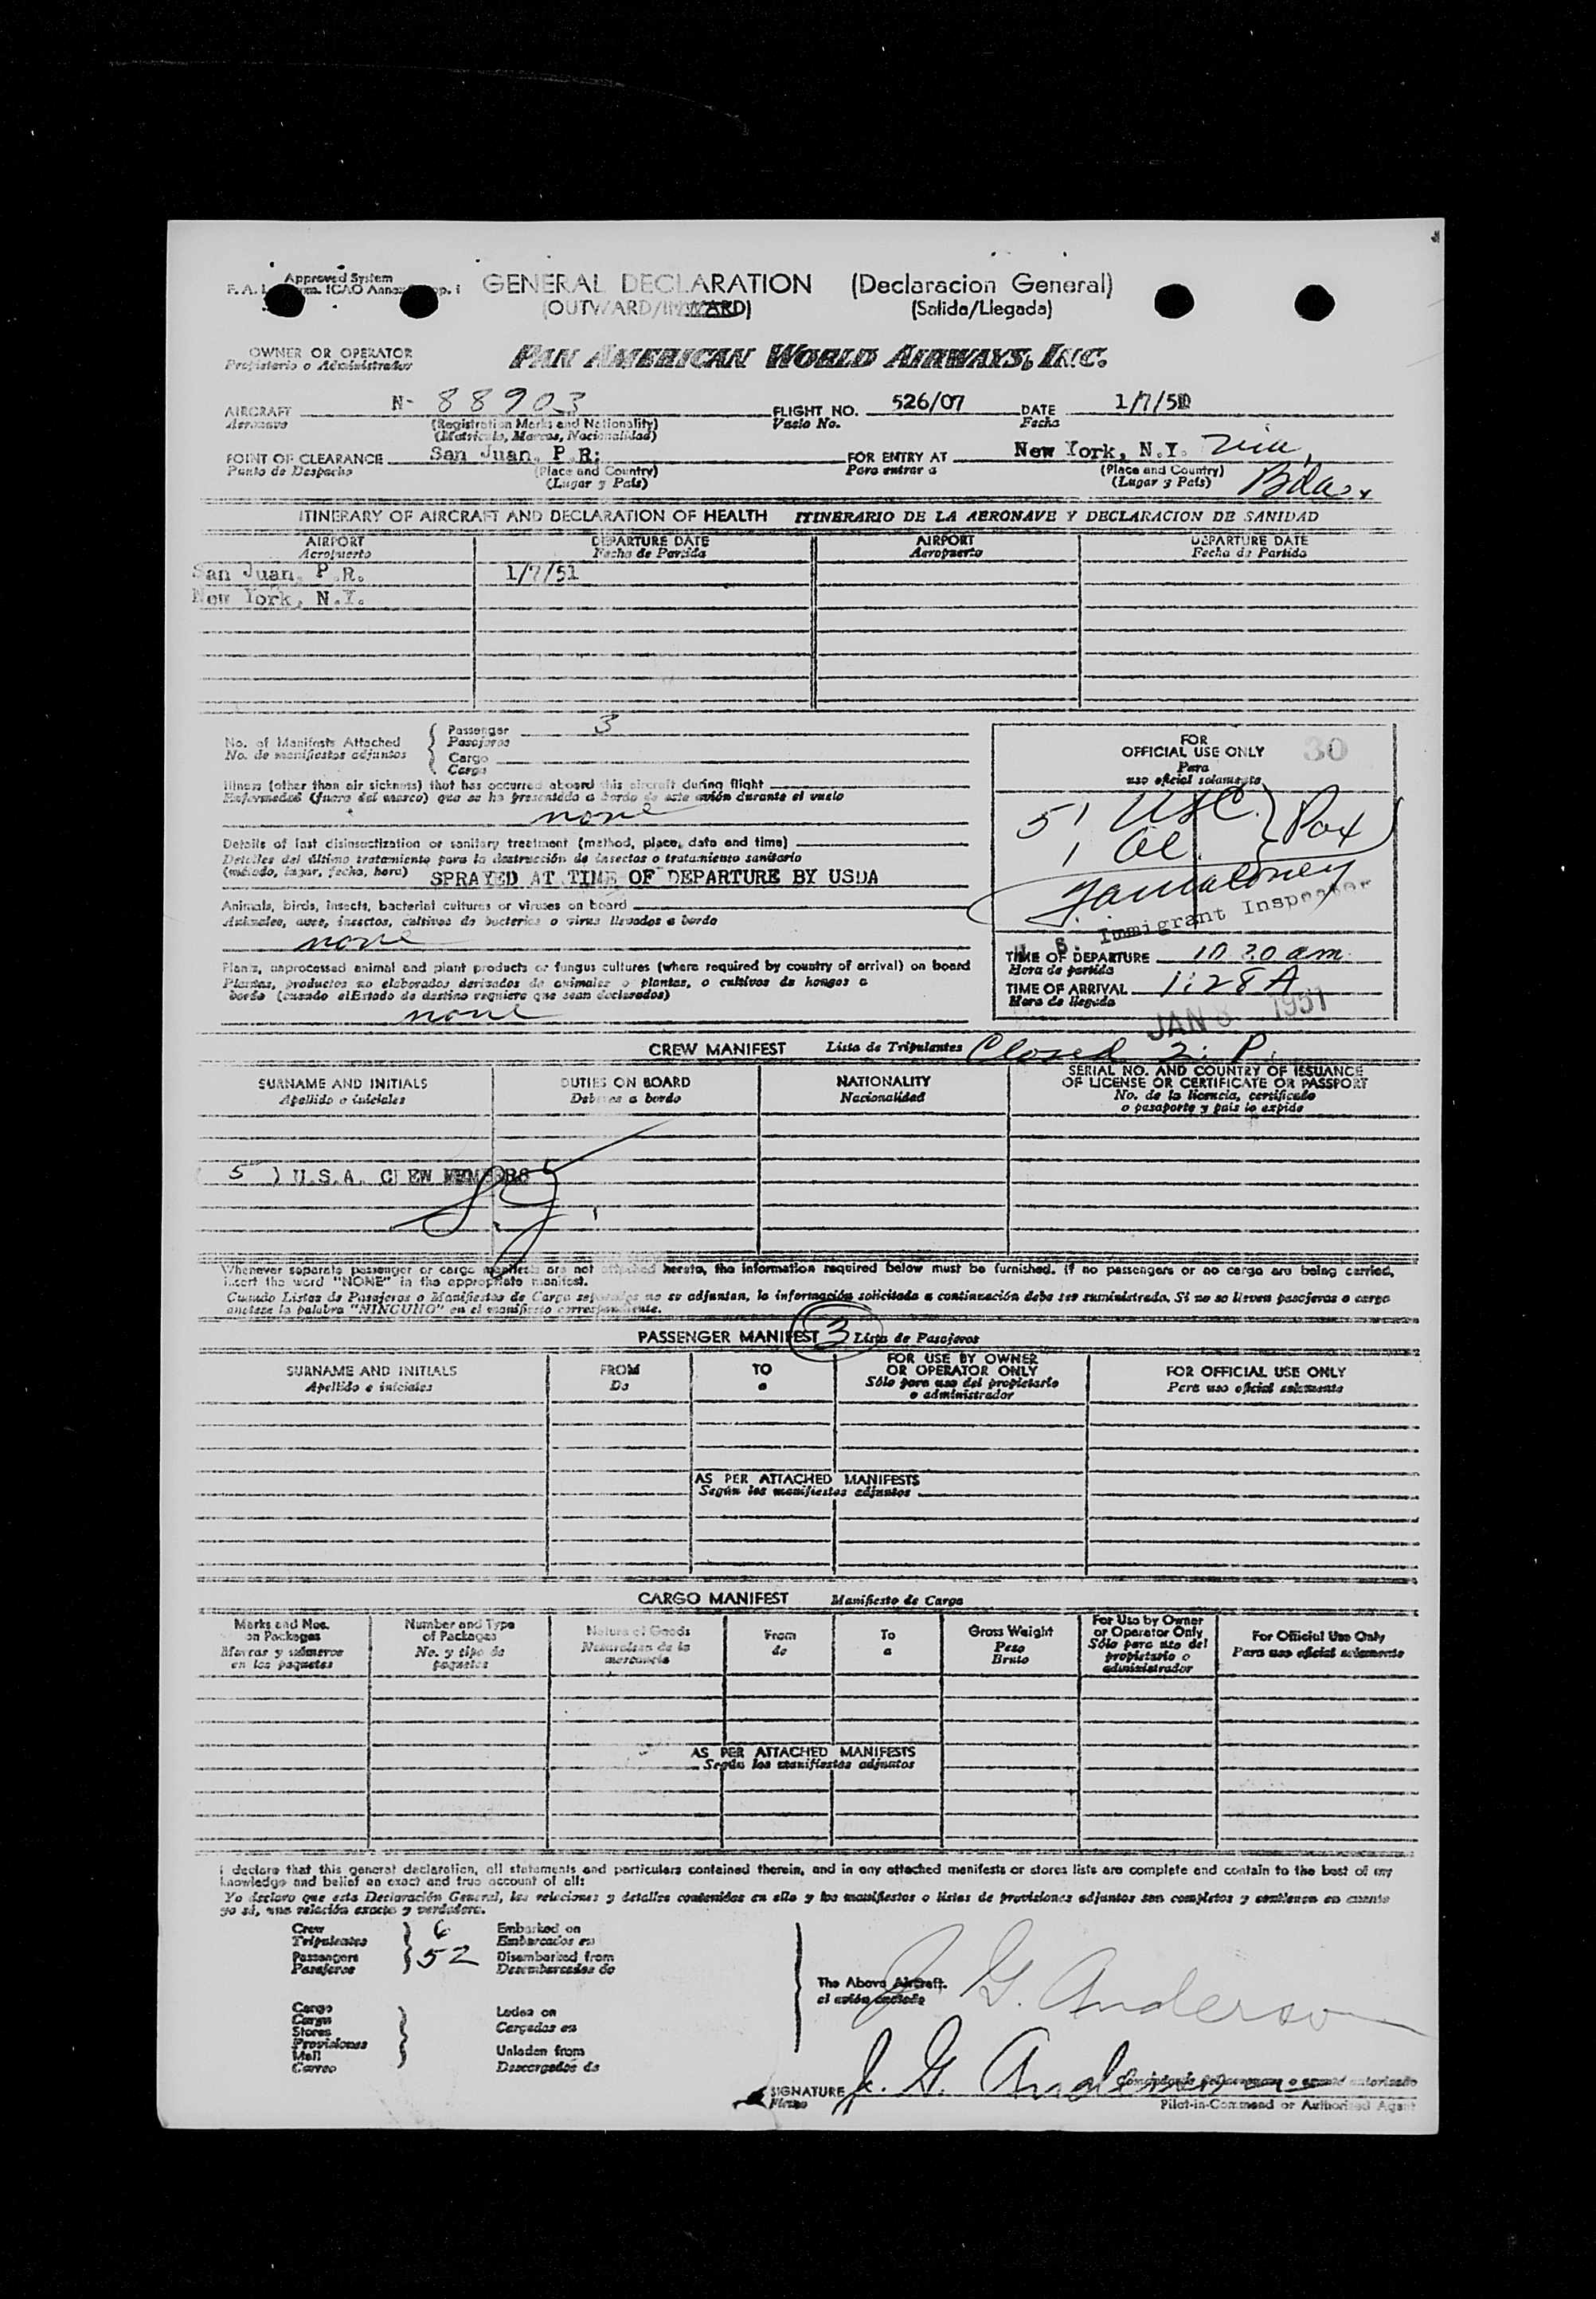 Approved System
GENERAL DECLARATION (Declaracion General)
(OUTWARD/INWARD) (Salida/Llegada)
OWNER OR OPERATOR PAN AMERICAN WORLD AIRWAYS, INC.
Propietario o Administrador
AIRCRAFT N- 88903 FLIGHT NO. 526/07 DATE 1/7/51
Aeronave (Registration Marks and Nationality) Vuelo No. Fecha
(Matricula, Marcas, Nacionalidad)
POINT OF CLEARANCE San Juan, P.R. FOR ENTRY AT New York, N.Y. via
Punto de Despacho (Place and Country) Para entrar a (Place and Country) Bda.
(Lugar y Pais) (Lugar y Pais)
ITINERARY OF AIRCRAFT AND DECLARATION OF HEALTH ITINERARIO DE LA AERONAVE Y DECLARACION DE SANIDAD
AIRPORT DEPARTURE DATE AIRPORT DEPARTURE DATE
Aeropuerto Fecha de Partida Aeropuerto Fecha de Partida
San Juan, P.R. 1/7/51
New York, N.Y.
No. of Manifests Attached Passenger 3
No. de manifiestos adjuntos Pasajeros
Cargo
Carga
Illness (other than air sickness) that has occurred aboard this aircraft during flight
Enfermedad (fuera del mareo) que se ha presentado a bordo de este avión durante el vuelo
none
Details of last disinsectization or sanitary treatment (method, place, date and time)
Detalles del último tratamiento para la destrucción de insectos o tratamiento sanitario
(método, lugar, fecha, hora) SPRAYED AT TIME OF DEPARTURE BY USDA
Animals, birds, insects, bacterial cultures or viruses on board
Animales, aves, insectos, cultivos de bacterias o virus llevados a bordo
none
Plants, unprocessed animal and plant products or fungus cultures (where required by country of arrival) on board
Plantas, productos no elaborados derivados de animales o plantas, o cultivos de hongos a
bordo (cuando el Estado de destino requiera que sean declarados)
none
FOR
OFFICIAL USE ONLY 30
Para
uso oficial solamente
51 USC
1 Pax
U. S. Immigrant Inspector
TIME OF DEPARTURE 10 20 am
Hora de partida
TIME OF ARRIVAL 1:28 A
Hora de llegada
JAN 8 1951
CREW MANIFEST Lista de Tripulantes Closed 2: P.
SURNAME AND INITIALS DUTIES ON BOARD NATIONALITY SERIAL NO. AND COUNTRY OF ISSUANCE
OF LICENSE OR CERTIFICATE OR PASSPORT
Apellido o iniciales Deberes a bordo Nacionalidad No. de la licencia, certificado
o pasaporte y pais lo expide
( 5 ) U.S.A. CREW MEMBERS
Whenever separate passenger or cargo manifests are not attached hereto, the information required below must be furnished. If no passengers or no cargo are being carried,
insert the word "NONE" in the appropriate manifest.
Cuando Listas de Pasajeros o Manifiestos de Carga separados no se adjuntan, la información solicitada a continuación debe ser suministrada. Si no se lleven pasajeros o carga
anotese la palabra "NINGUNO" en el manifiesto correspondiente.
PASSENGER MANIFEST 3 Lista de Pasajeros
SURNAME AND INITIALS FROM TO FOR USE BY OWNER
OR OPERATOR ONLY FOR OFFICIAL USE ONLY
Apellido e iniciales De a Sólo para uso del propietario
o administrador Para uso oficial solamente
AS PER ATTACHED MANIFESTS
Según los manifiestos adjuntos
CARGO MANIFEST Manifiesto de Carga
Marks and Nos. on Packages Number and Type of Packages Nature of Goods From To Gross Weight For Use by Owner or Operator Only For Official Use Only
Marcas y números en los paquetes No. y tipo de paquetes Naturaleza de la mercancía de a Peso Bruto Sólo para uso del propietario o administrador Para uso oficial solamente
AS PER ATTACHED MANIFESTS
Según los manifiestos adjuntos
I declare that this general declaration, all statements and particulars contained therein, and in any attached manifests or stores lists are complete and contain to the best of my
knowledge and belief an exact and true account of all:
Yo declaro que esta Declaración General, las relaciones y detalles contenidos en ella y los manifiestos o listas de provisiones adjuntos son completos y contienen en cuanto
yo sé, una relación exacta y verdadera.
Crew 6 Embarked on
Tripulantes Embarcados en
Passengers 52 Disembarked from
Pasajeros Desembarcados de
The Above Aircraft.
el avión
J. G. Anderson
Cargo Laden on
Carga Cargados en
Stores
Provisiones
Mail Unladen from
Correo Descargados de
SIGNATURE J. G. Anderson
Firma
Pilot-in-Command or Authorized Agent